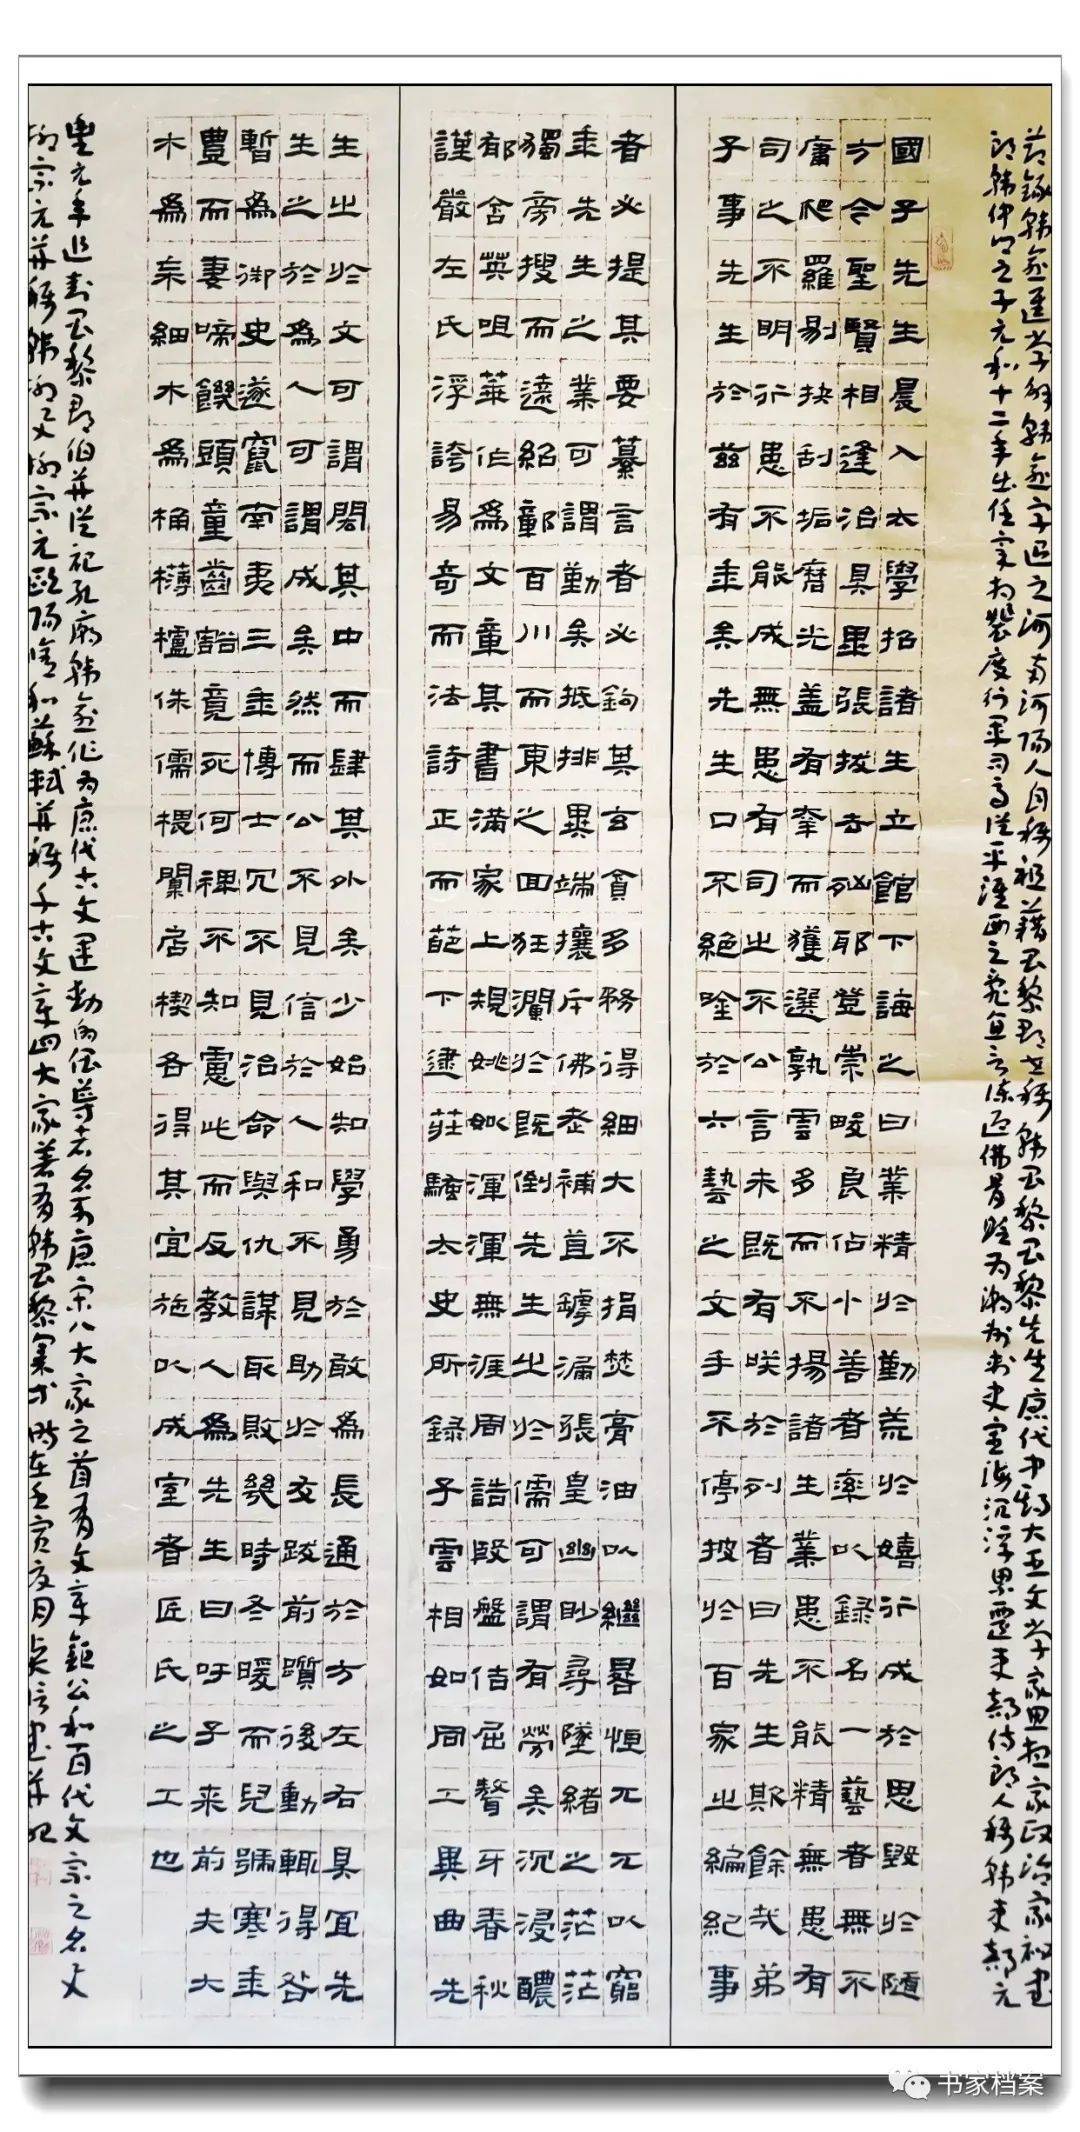 节録韩愈進学解韩愈字退之河南河阳人自称祖籍昌黎郡世称韩昌黎昌黎先生唐代中期大臣文学家思想家政治家秘書
郎韩仲卿之子元和十二年出任宰相裴度行軍司马從平淮西之亂直言谏迎佛骨贬为潮州刺史宦海沉浮累遷吏部侍郎人称韩吏部元
國子先生晨入太學招諸生立館下誨之曰業精於勤荒於嬉行成於思毀於随
方今聖賢相逢治具畢張拔去凶耶登崇畯良佔小善者率以録名一藝者無不
庸爬羅剔抉刮垢磨光盖有幸而獲選孰雲多而不揚諸生業患不能精無患有
司之不明行患不能成無患有司之不公言未既有咲於列者曰先生斯餘哉弟
子事先生於兹有年矣先生口不絶唫於六藝之文手不停披於百家之編紀事
者必提其要纂言者必鉤其玄貪多務得細大不捐焚膏油以繼晷恒兀兀以窮
年先生之業可謂勤矣抵排異端攘斥佛老補苴罅漏張皇幽眇尋墜緒之茫茫
獨旁搜而遠紹鄣百川而東之回狂瀾於既倒先生之於儒可謂有勞矣沉浸醲
郁含英咀華作爲文章其書滿家上規姚姒渾渾無涯周誥殷盤佶屈聱牙春秋
謹嚴左氏浮誇易奇而法詩正而葩下逮莊騷太史所録子雲相如同工異曲先
生之於文可謂閎其中而肆其外矣少始知學勇於敢爲長通於方左右具宜先
生之於爲人可謂成矣然而公不見信於人私不見助於友跋前躓後動輒得咎
暫爲御史遂竄南夷三年博士冗不見治命與仇謀取敗幾時冬暖而兒號寒年
豊而妻啼饑頭童齒豁竟死何裨不知慮此而反教人爲先生曰吁子来前夫大
木爲杗細木爲桷欂櫨侏儒椳闑扂楔各得其宜施以成室者匠氏之工也
豐元年追封昌黎郡伯并從祀孔廟韩愈作为唐代古文運動的倡導者名列唐宋八大家之首有文章鉅公和百代文宗之名文
柳宗元并称韩柳又柳宗元歐陽修和蘇軾并称千古文章四大家著有韩昌黎集等时在壬寅夏月書并记
书家档案